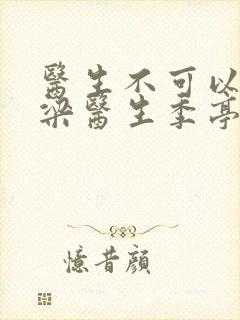 醫生不可以
梁醫生季亭
憶昔顏